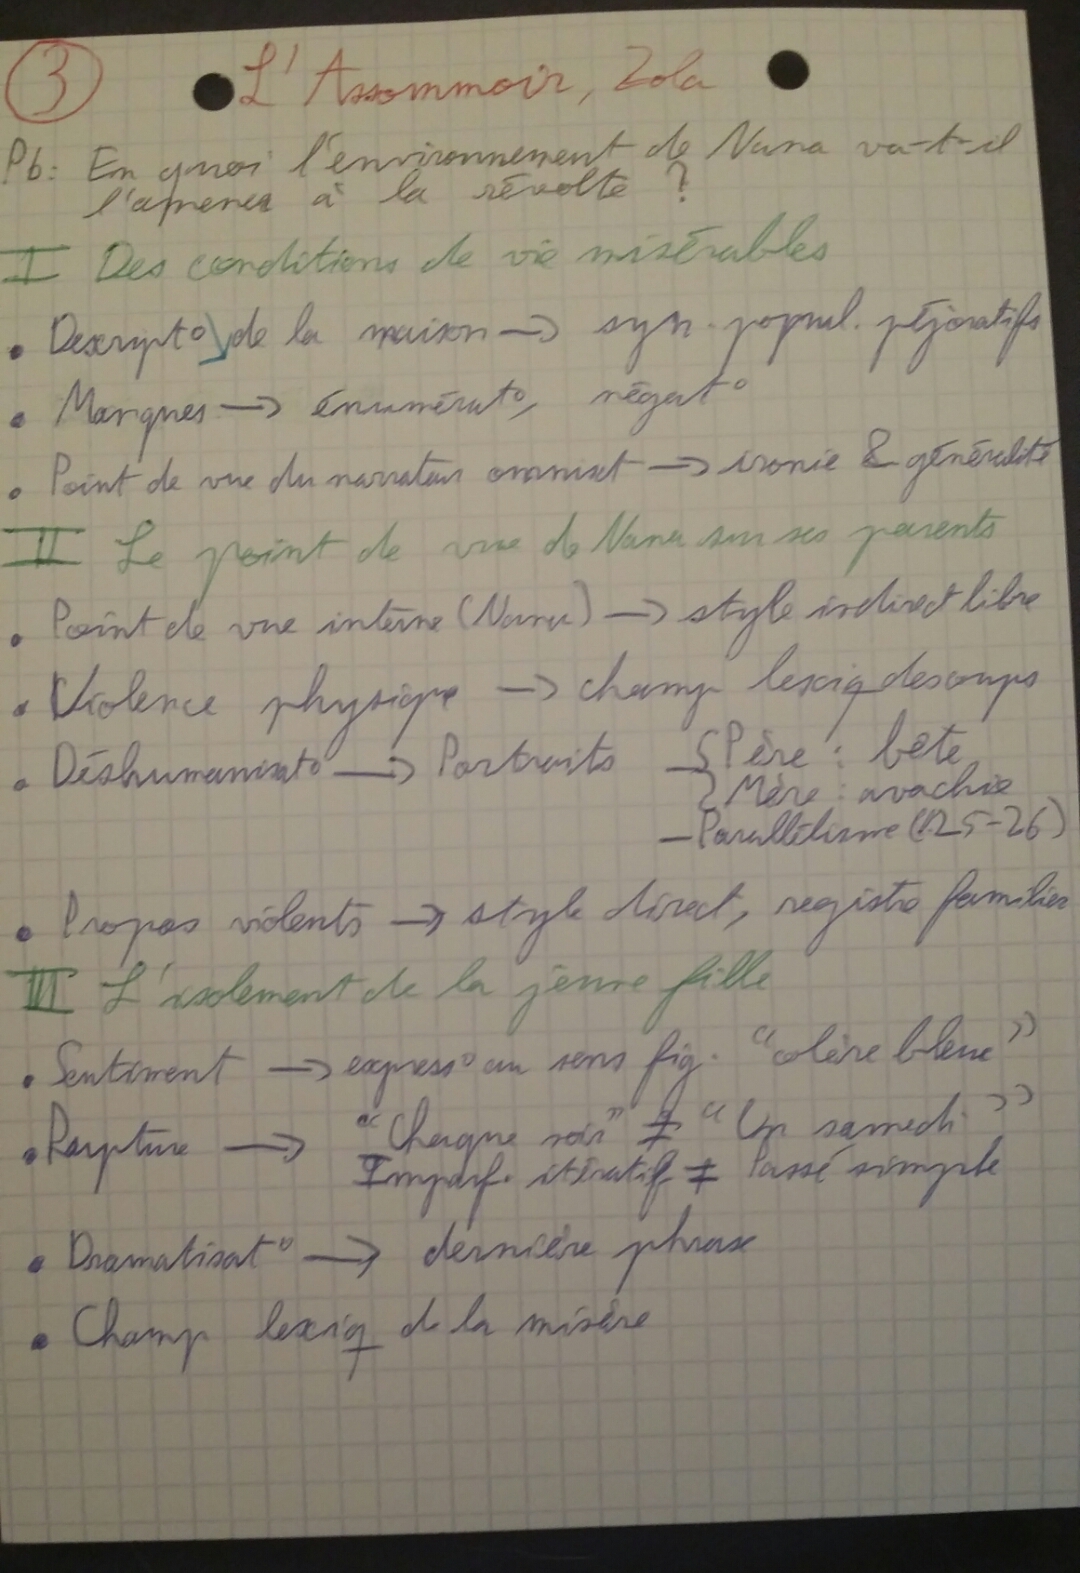 3 L'Assommoir, Zola
Pb: En quoi l'environnement de Nana va-t-il
l'amener à la révolte ?
I Des conditions de vie misérables
• Descript° de la maison → syn. popul. péjoratifs
• Manques → énumérat°, négat°
• Point de vue du narrateur omnisct → ironie & généralité
II Le point de vue de Nana sur ses parents
• Point de vue interne (Nana) → style indirect libre
• Violence physique → champ lexiq des coups
• Déshumanisat° → Portraits { Père : bête
Mère : avachie
– Parallélisme (l.25-26)
• Propos violents → style direct, registre familier
III L'isolement de la jeune fille
• Sentiment → express° au sens fig. "colère bleue"
• Rupture → "Chaque soir" ≠ "Un samedi"
Imparf. itératif ≠ Passé simple
• Dramatisat° → dernière phrase
• Champ lexiq de la misère